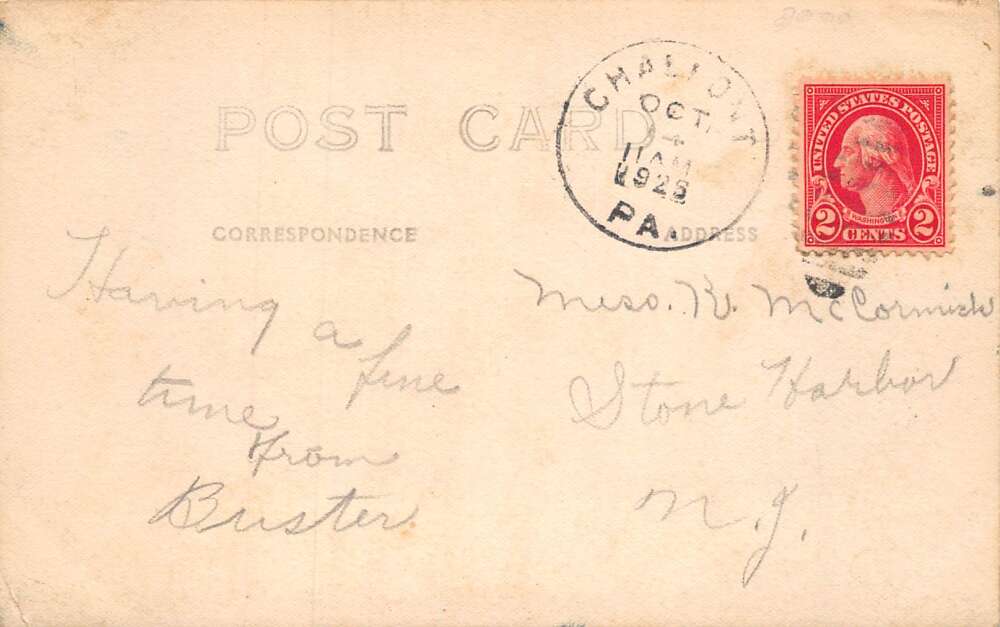 POST CARD
CHALFONT
OCT
4
11 AM
1928
PA.
UNITED STATES POSTAGE
WASHINGTON
2 CENTS 2
CORRESPONDENCE
ADDRESS
Having a
fine
time
from
Buster
Miss. R. McCormick
Stone Harbor
N.J.